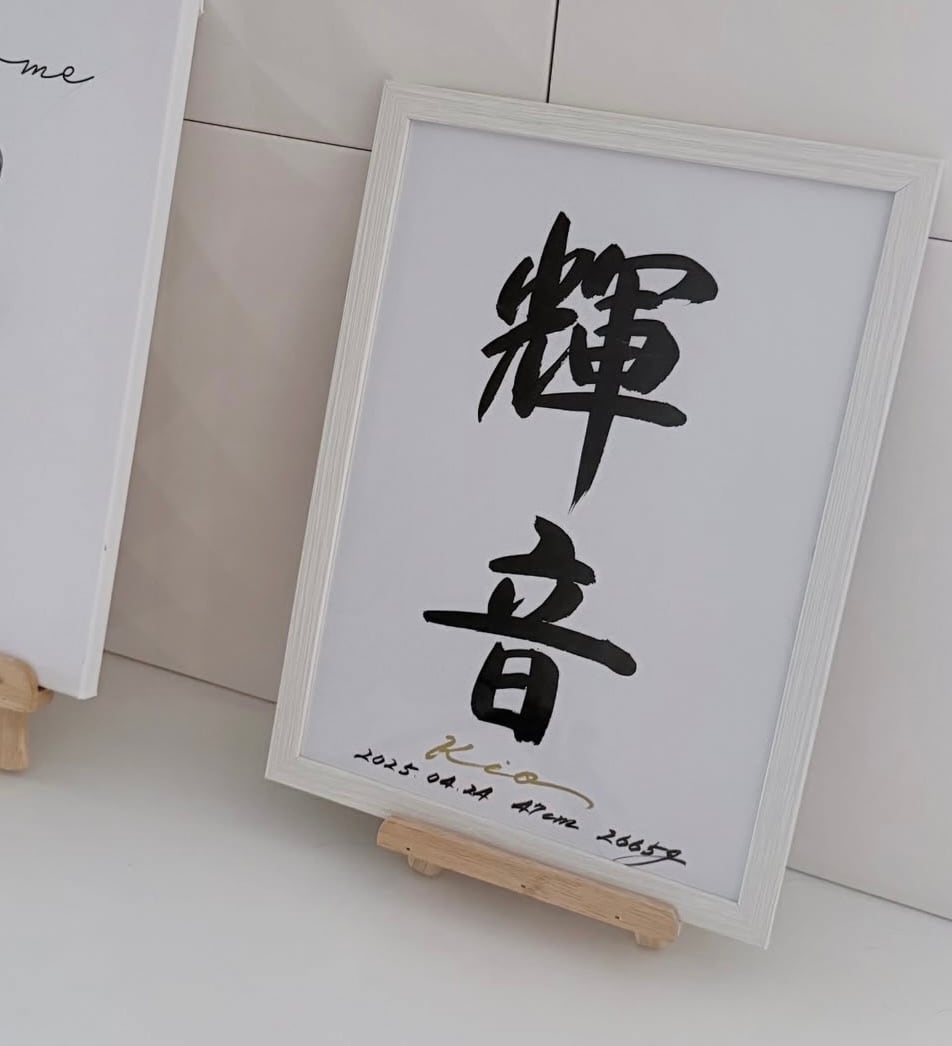 me
輝
音
Kio
2025.04.24 47cm 2665g